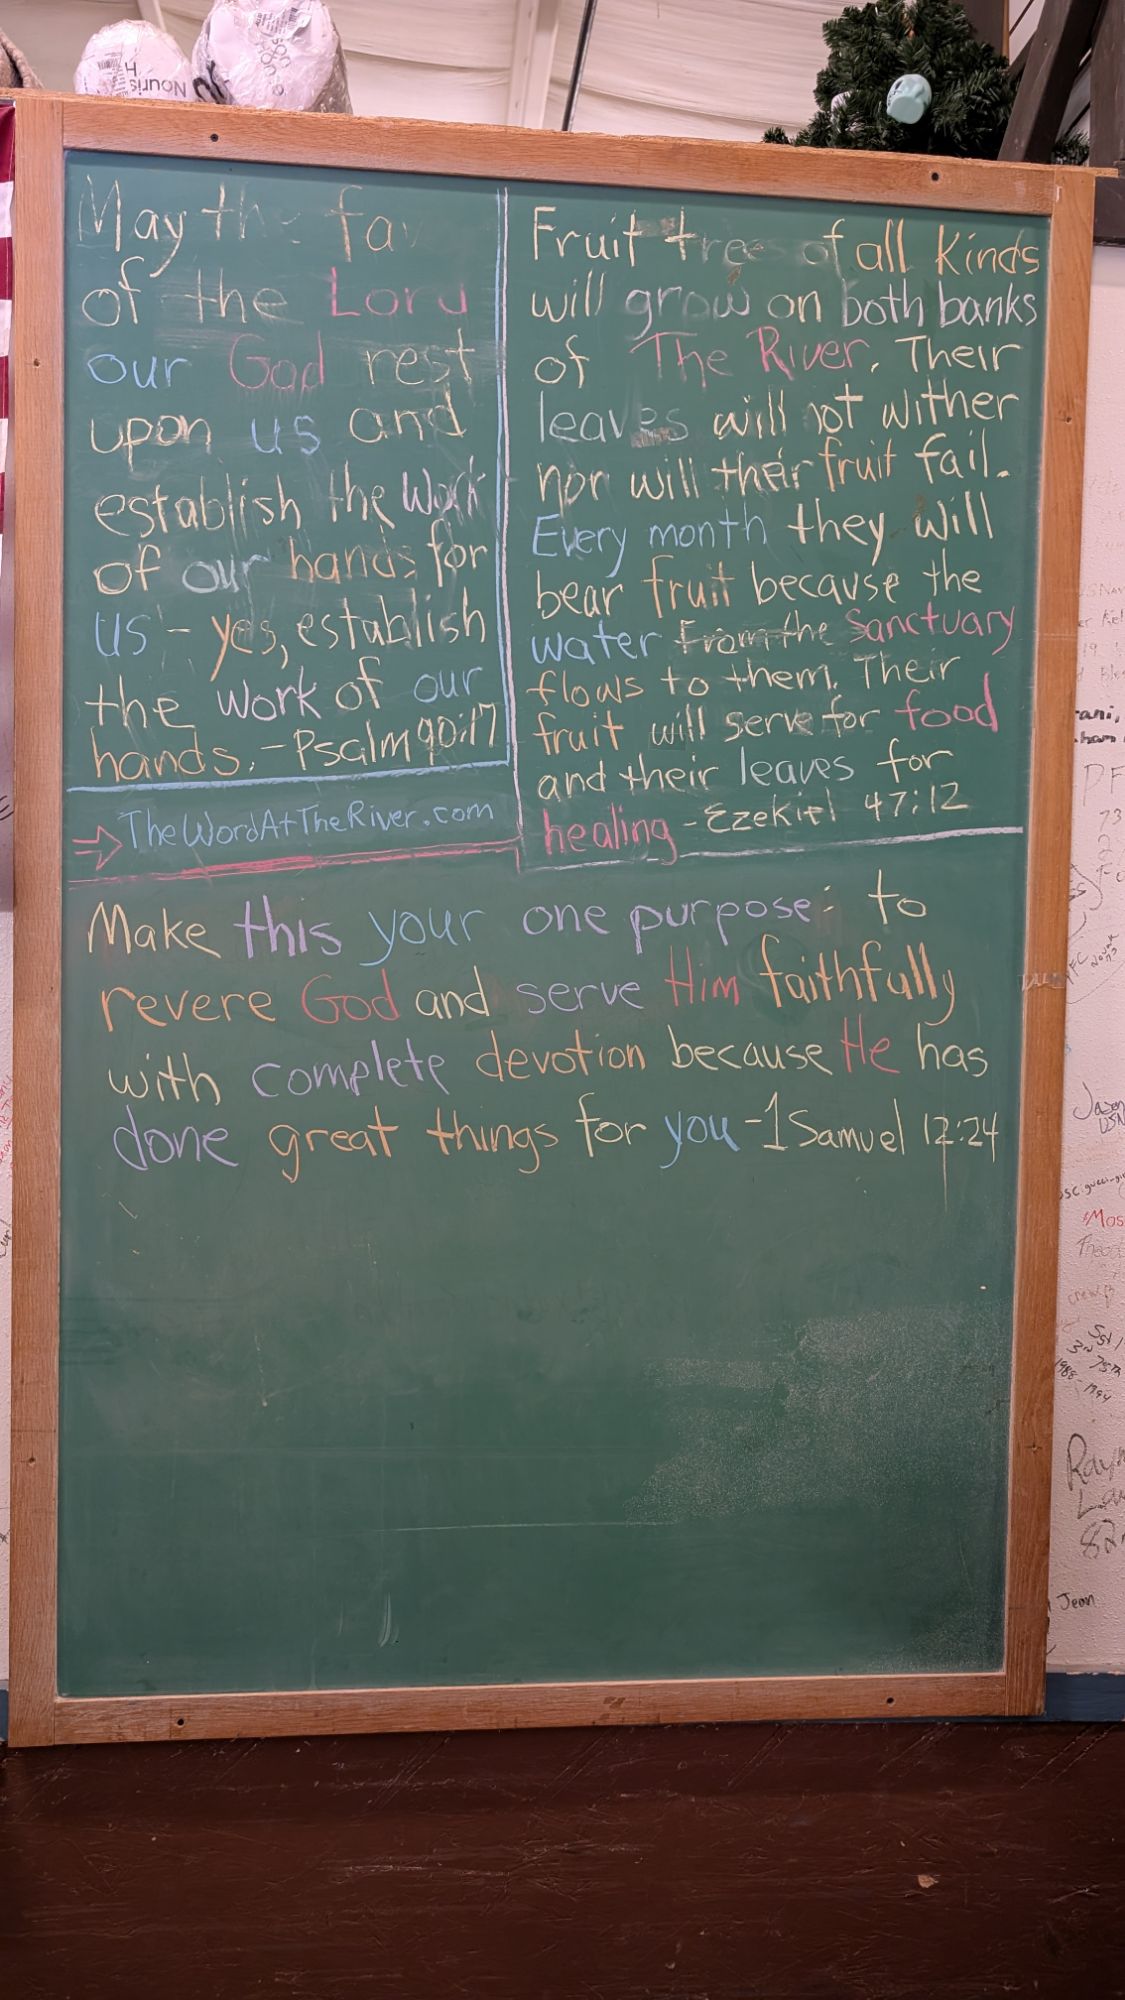 May the fa
of the Lord
our God rest
upon us and
establish the work
of our hands for
us - yes, establish
the work of our
hands. - Psalm 90:17
TheWordAtTheRiver.com
Fruit trees of all kinds
will grow on both banks
of The River. Their
leaves will not wither
nor will their fruit fail.
Every month they will
bear fruit because the
water from the Sanctuary
flows to them. Their
fruit will serve for food
and their leaves for
healing - Ezekiel 47:12
Make this your one purpose: to
revere God and serve Him faithfully
with complete devotion because He has
done great things for you - 1 Samuel 12:24
Jean